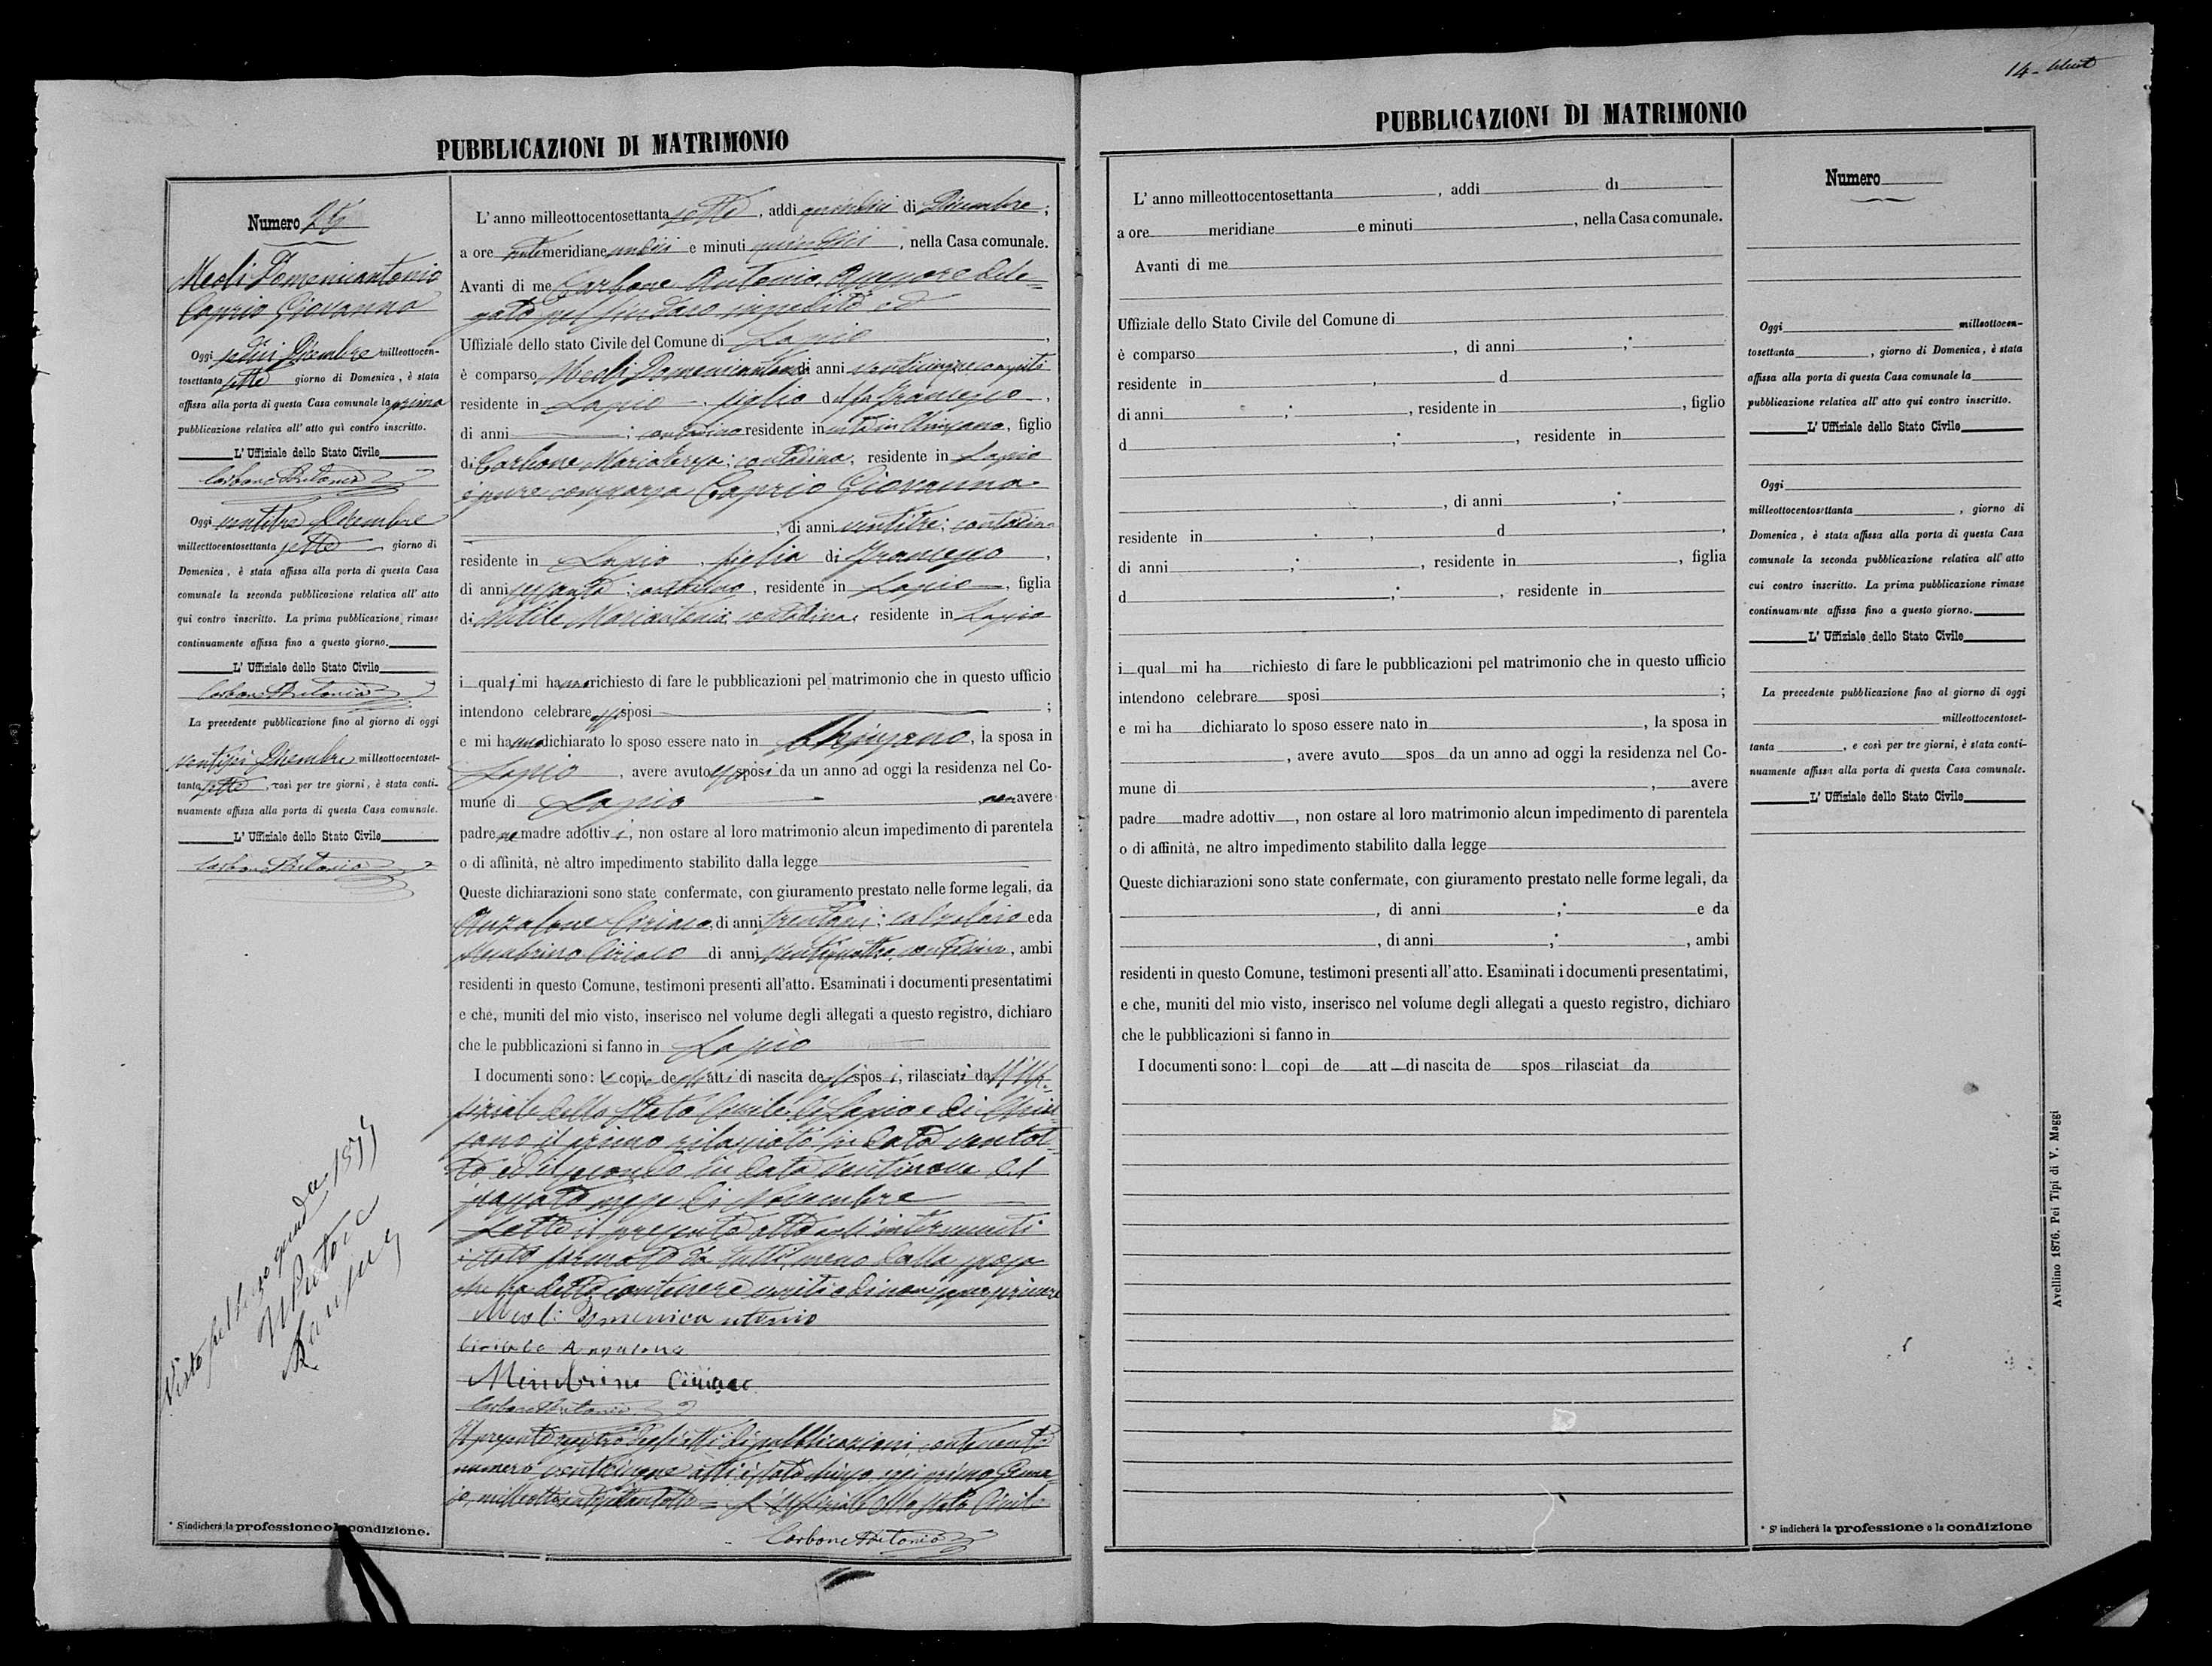 14-
PUBBLICAZIONI DI MATRIMONIO
Numero 25
Meoli Domenicantonio
Caprio Giovanna
Oggi sedici Dicembre milleottocen-
tosettanta sette giorno di Domenica, è stata
affissa alla porta di questa Casa comunale la prima
pubblicazione relativa all' atto quì contro inscritto.
L' Uffiziale dello Stato Civile
Carbone Antonio
Oggi ventitre Dicembre
milleottocentosettanta sette, giorno di
Domenica, è stata affissa alla porta di questa Casa
comunale la seconda pubblicazione relativa all' atto
qui contro inscritto. La prima pubblicazione rimase
continuamente affissa fino a questo giorno.
L' Uffiziale dello Stato Civile
Carbone Antonio
La precedente pubblicazione fino al giorno di oggi
ventisei Dicembre milleottocentoset-
tanta sette, così per tre giorni, è stata conti-
nuamente affissa alla porta di questa Casa comunale.
L' Uffiziale dello Stato Civile
Carbone Antonio
Visto 1877
Il Pretore
* S'indicherà la professione o la condizione.
L' anno milleottocentosettanta sette, addi quindici di Dicembre;
a ore antemeridiane undici e minuti quindici, nella Casa comunale.
Avanti di me Carbone Antonio, Assessore dele=
gato pel Sindaco impedito ed
Uffiziale dello stato Civile del Comune di Lapio,
è comparso Meoli Domenicantonio di anni venticinque compiti
residente in Lapio, figlio del fu Francesco,
di anni ; contadino residente in vita in Chiusano, figlio
di Carbone Mariateresa; contadina, residente in Lapio
è pure comparsa Caprio Giovanna
, di anni ventitre; contadina
residente in Lapio, figlia di Francesco,
di anni sessanta; contadino, residente in Lapio, figlia
di Mariantonia, contadina, residente in Lapio
i quali mi hanno richiesto di fare le pubblicazioni pel matrimonio che in questo ufficio
intendono celebrare essi sposi ;
e mi hanno dichiarato lo sposo essere nato in Chiusano, la sposa in
Lapio, avere avuto essi sposi da un anno ad oggi la residenza nel Co-
mune di Lapio , non avere
padre ne madre adottivi, non ostare al loro matrimonio alcun impedimento di parentela
o di affinità, nè altro impedimento stabilito dalla legge
Queste dichiarazioni sono state confermate, con giuramento prestato nelle forme legali, da
Anzalone Ciriaco, di anni trentasei; calzolaio e da
Membrino Ciriaco di anni ventiquattro, contadino, ambi
residenti in questo Comune, testimoni presenti all'atto. Esaminati i documenti presentatimi
e che, muniti del mio visto, inserisco nel volume degli allegati a questo registro, dichiaro
che le pubblicazioni si fanno in Lapio
I documenti sono: le copie degli atti di nascita degli sposi, rilasciati dall'Uf-
fiziale dello Stato Civile di Lapio e di Chiu
sano il primo rilasciato in data ventot-
to ed il secondo in data ventinove del
passato mese di Novembre
Letto il presente atto agli intervenuti
è stato firmato da tutti, meno dalla sposa
che ha detto
Meoli Domenica ntonio
Ciriaco Anzalone
Membrino Ciriaco
Carbone Antonio
Il presente registro degli atti di pubblicazioni, contenente
numero venticinque atti è stato chiuso oggi primo Genna-
io, milleottocentosettantotto = L'Uffiziale dello Stato Civile
Carbone Antonio
PUBBLICAZIONI DI MATRIMONIO
L' anno milleottocentosettanta , addi di
a ore meridiane e minuti , nella Casa comunale.
Avanti di me
Uffiziale dello Stato Civile del Comune di
è comparso , di anni ;*
residente in , d
di anni ;* , residente in , figlio
d ;* , residente in
, di anni ;*
residente in , d ,
di anni ;* , residente in , figlia
d ;* , residente in
i qual mi ha richiesto di fare le pubblicazioni pel matrimonio che in questo ufficio
intendono celebrare sposi ;
e mi ha dichiarato lo sposo essere nato in , la sposa in
, avere avuto spos da un anno ad oggi la residenza nel Co-
mune di , avere
padre madre adottiv , non ostare al loro matrimonio alcun impedimento di parentela
o di affinità, ne altro impedimento stabilito dalla legge
Queste dichiarazioni sono state confermate, con giuramento prestato nelle forme legali, da
, di anni ;* e da
, di anni ;* , ambi
residenti in questo Comune, testimoni presenti all'atto. Esaminati i documenti presentatimi,
e che, muniti del mio visto, inserisco nel volume degli allegati a questo registro, dichiaro
che le pubblicazioni si fanno in
I documenti sono: l copi de att di nascita de spos rilasciat da
Numero
Oggi milleottocen-
tosettanta , giorno di Domenica, è stata
affissa alla porta di questa Casa comunale la
pubblicazione relativa all' atto qui contro inscritto.
L' Uffiziale dello Stato Civile
Oggi
milleottocentosettanta , giorno di
Domenica, è stata affissa alla porta di questa Casa
comunale la seconda pubblicazione relativa all' atto
cui contro inscritto. La prima pubblicazione rimase
continuamente affissa fino a questo giorno.
L' Uffiziale dello Stato Civile
La precedente pubblicazione fino al giorno di oggi
milleottocentoset-
tanta , e così per tre giorni, è stata conti-
nuamente affissa alla porta di questa Casa comunale.
L' Uffiziale dello Stato Civile
* S' indicherà la professione o la condizione
Avellino 1876. Pei Tipi di V. Maggi